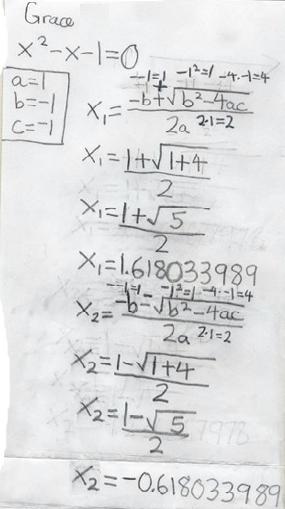 Grace
x²-x-1=0
a=1
b=-1
c=-1
--1=1 -1²=1 -4·-1=4
x₁=(-b+√(b²-4ac))/2a 2·1=2
x₁=(1+√(1+4))/2
x₁=(1+√5)/2
x₁=1.618033989
--1=1 -1²=1 -4·-1=4
x₂=(-b-√(b²-4ac))/2a 2·1=2
x₂=(1-√(1+4))/2
x₂=(1-√5)/2
x₂=-0.618033989